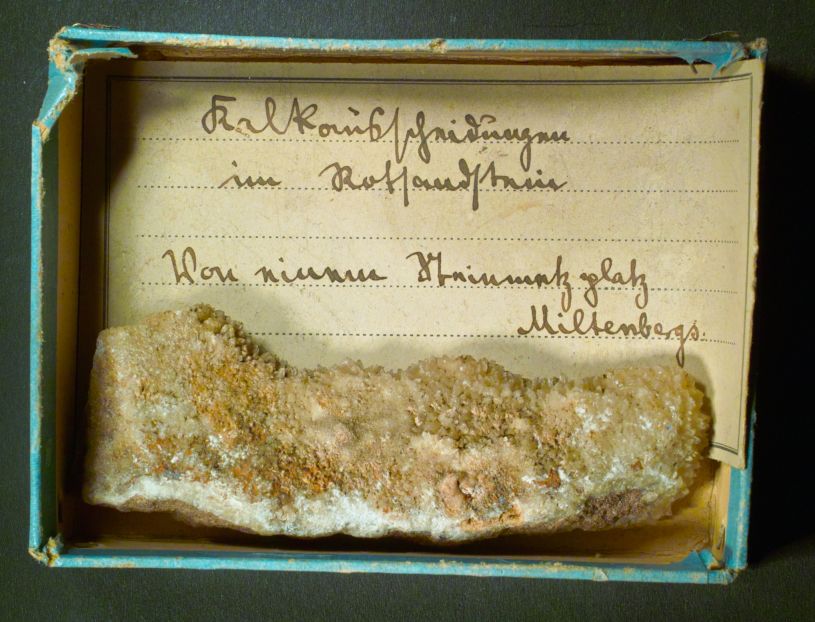 Kalkausscheidungen
im Rotsandstein
Von einem Steinmetzplatz
Miltenbergs.